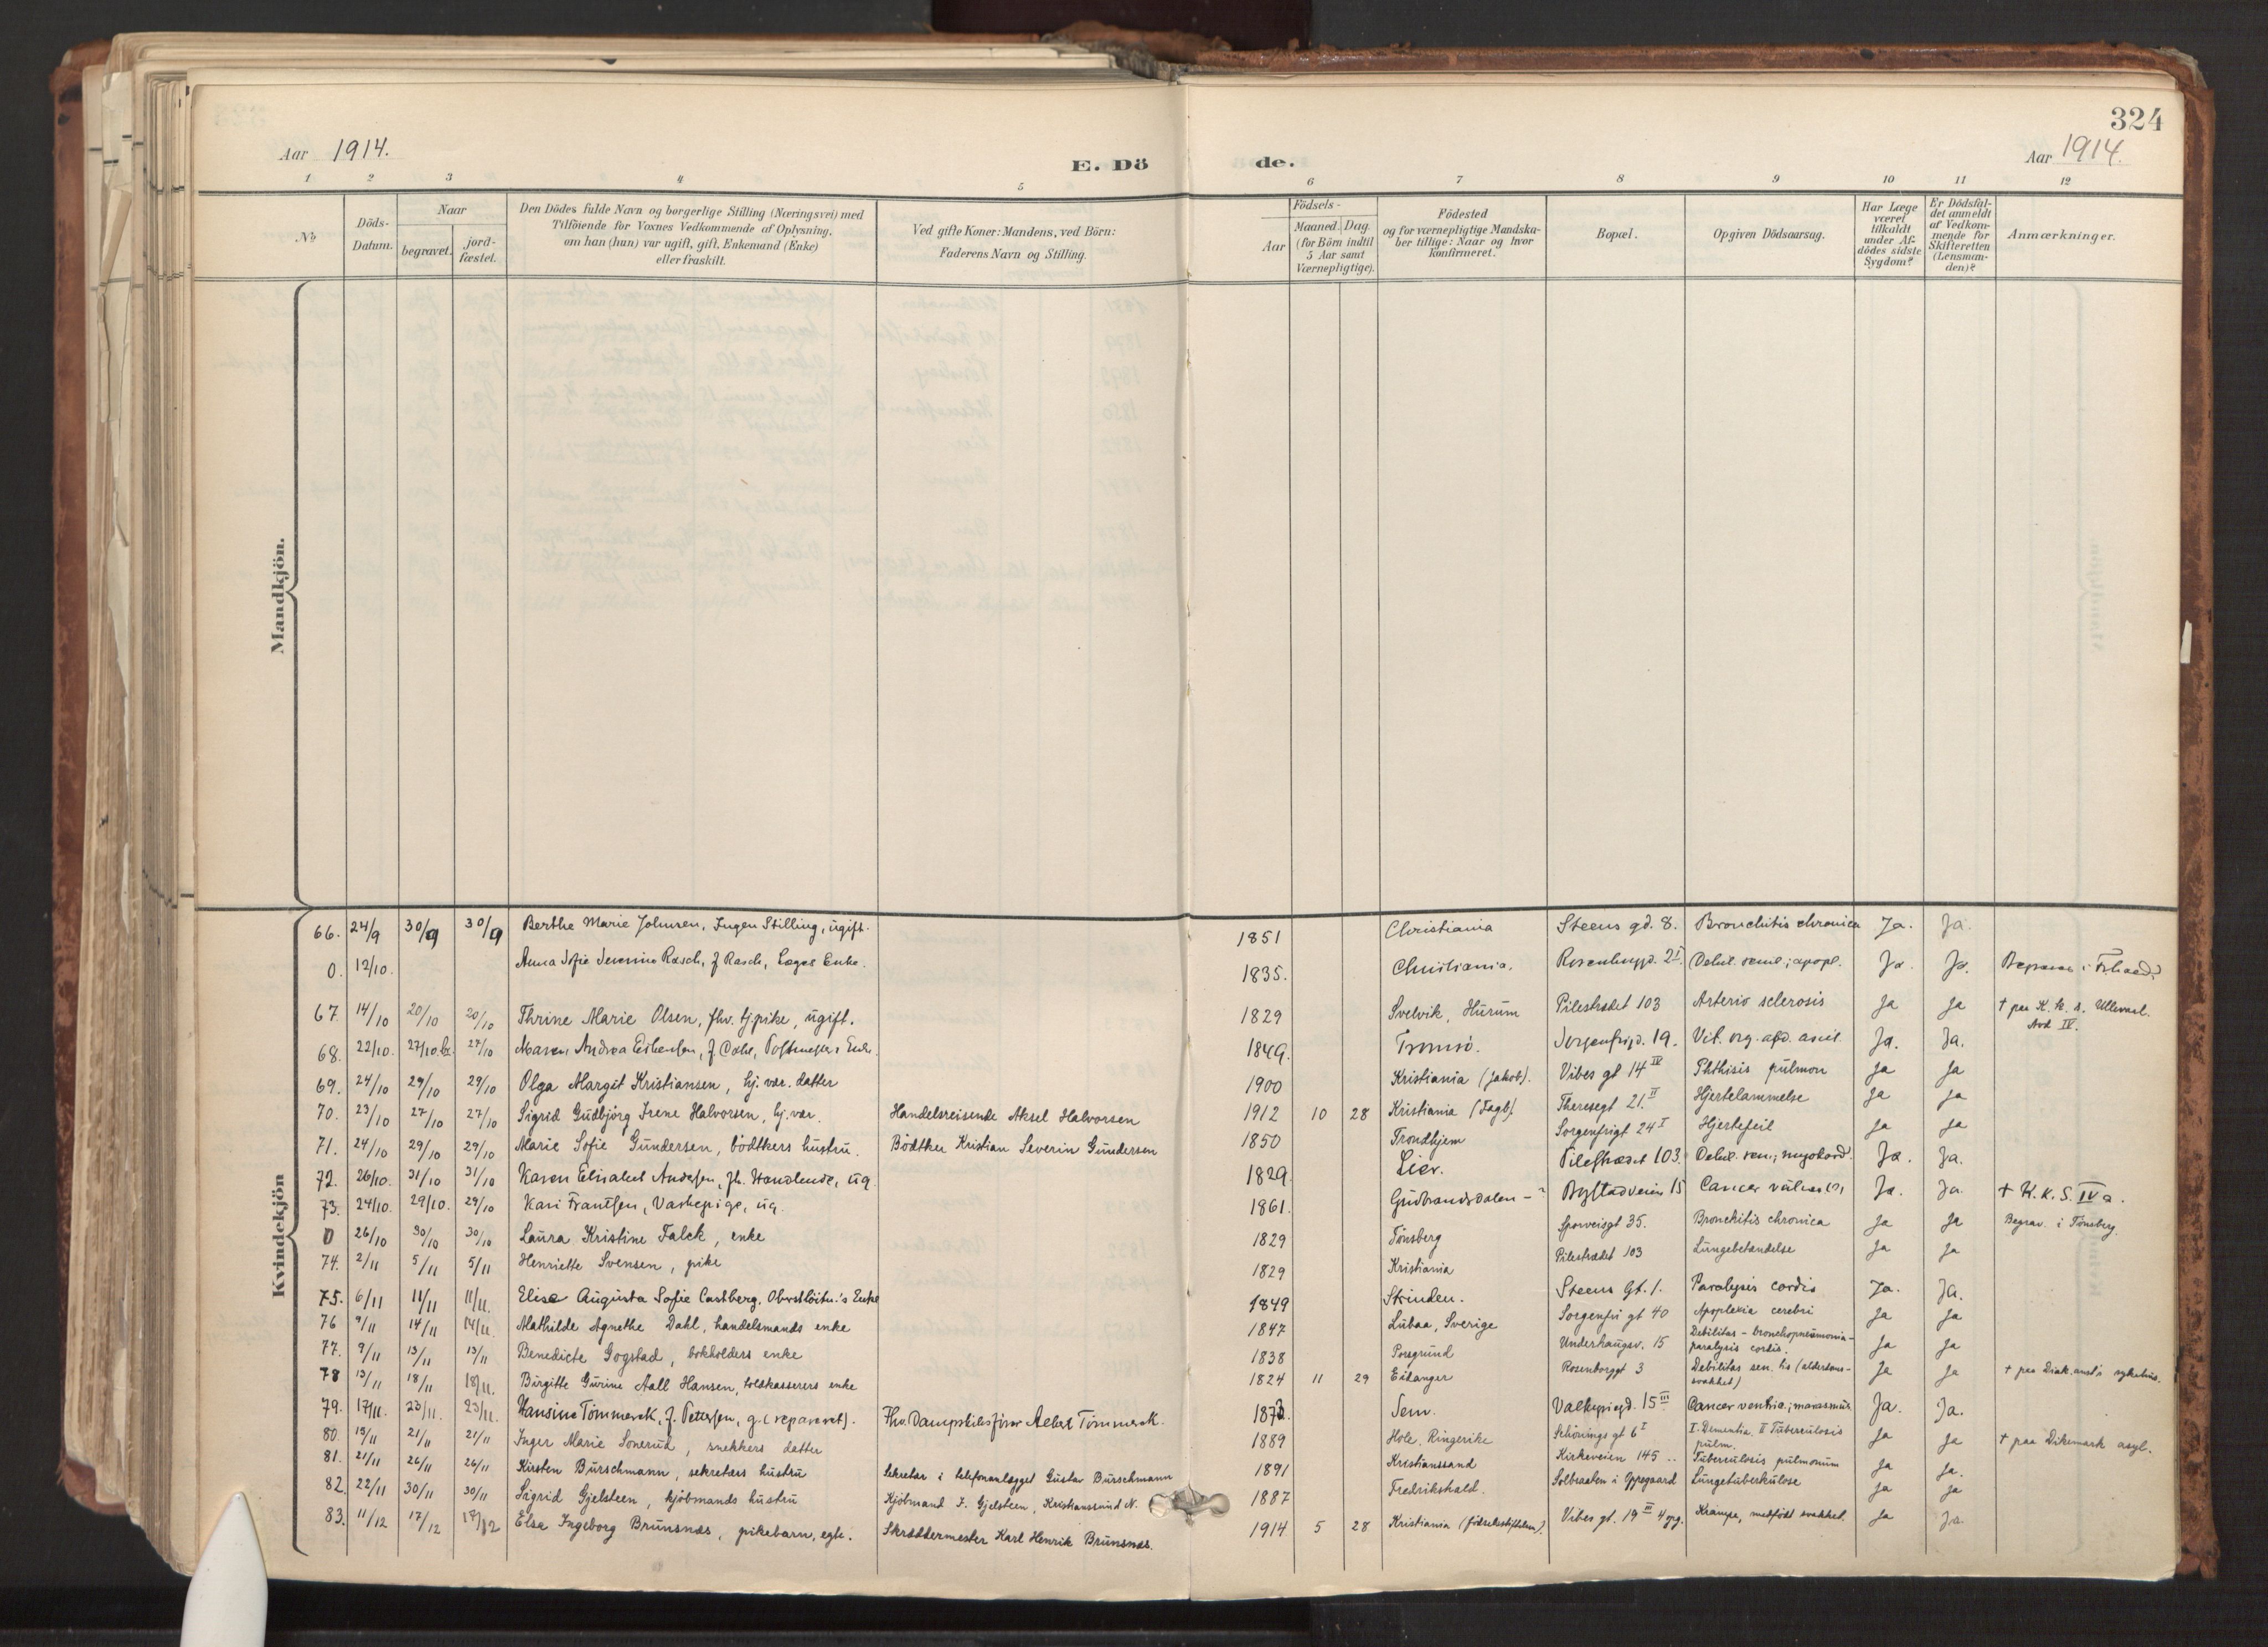 324
Aar 1914.
E. Dö de.
Aar 1914.
1 2 3 4 5 6 7 8 9 10 11 12
No
Döds-Datum.
Naar
begravet.
jord-fæstet.
Den Dödes fulde Navn og borgerlige Stilling (Næringsvei) med
Tilföiende for Voxnes Vedkommende af Oplysning,
om han (hun) var ugift, gift, Enkemand (Enke)
eller fraskilt.
Ved gifte Koner: Mandens, ved Börn:
Faderens Navn og Stilling.
Födsels-
Aar
Maaned. Dag.
(for Börn indtil
5 Aar samt
Værnepligtige).
Födested
og for værnepligtige Mandska-
ber tillige: Naar og hvor
konfirmeret.
Bopæl.
Opgiven Dödsaarsag.
Har Læge
været
tilkaldt
under Af-
dödes sidste
Sygdom?
Er Dödsfal-
det anmeldt
af Vedkom-
mende for
Skifteretten
(Lensman-
den)?
Anmærkninger.
Mandkjön.
Kvindekjön
66. 24/9 30/9 30/9 Berthe Marie Johnsen, Ingen Stilling, ugift. 1851 Christiania Steens gd. 8. Bronchitis chronica Ja. Ja.
0. 12/10. Anna Sofie Severine Rasch, f Rasch, Læges Enke. 1835. Christiania. Ja. Ja.
67. 14/10 20/10 20/10 Thrine Marie Olsen, fhv. tj.pike, ugift. 1829 Svelvik, Hurum Pilestrædet 103 Arterio sclerosis Ja Ja † paa K. k. s. Ullevaal. Avd IV.
68. 22/10. 27/10. 27/10 Maren Andrea 1849. Tromsö. Sorgenfrigd. 19. Vit. org. Ja. Ja.
69. 24/10 29/10 29/10 Olga Margit Kristiansen, hj. vær. datter 1900 Kristiania (Jakob). Vibes gt 14 IV Phthisis pulmon Ja Ja
70. 23/10 27/10 27/10 Sigrid Gudbjörg Irene Halvorsen, hj. vær. Handelsreisende Aksel Halvorsen 1912 10 28 Kristiania (Fagb). Theresegt 21. II Hjertelammelse Ja Ja
71. 24/10 29/10 29/10 Marie Sofie Gundersen, bödtkers hustru. Bödtker Kristian Severin Gundersen 1850 Trondhjem Sorgenfrigt 24 I Hjertefeil Ja Ja
72. 26/10. 31/10 31/10 Karen Elisabet Andersen, fh. Handlende, ug. 1829. Lier. Pilestrædet 103. Debil. sen.; myokard. Ja. Ja.
73. 24/10. 29/10. 29/10 Kari Frantsen, Vaskepige, ug. 1861. Gudbrandsdalen -? Bogstadveien 15 Cancer Ja. Ja. † K. k. S. IV a.
0 26/10 30/10 30/10 Laura Kristine Falck, enke 1829 Tönsberg Sporveisgt 35. Bronchitis chronica Ja Ja Begrav. i Tönsberg.
74. 2/11 5/11 5/11 Henriette Svensen, pike 1829 Kristiania Pilestrædet 103 Lungebetændelse Ja Ja
75. 6/11 11/11 11/11. Elise Augusta Sofie Castberg, Oberstlöitn.'s Enke 1849 Skinden. Steens Gt. 1. Paralysis cordis Ja. Ja.
76 9/11 14/11 14/11. Mathilde Agnethe Dahl, handelsmands enke 1847 Lubaa, Sverige Sorgenfri gt 40 Apoplexia cerebri Ja Ja
77. 9/11 13/11 13/11 Benedicte Gogstad, bokholders enke 1838 Porsgrund Underhaugsv. 15 Debilitas - bronchopneumonia - paralysis cordis. Ja Ja
78 13/11 18/11 18/11. Birgitte Gurine Aall Hansen, toldkasserers enke 1824 11 29 Eidanger Rosenborggt 3 Debilitas sen. lis (alderdoms-svakhet) Ja Ja † paa Diak.anst's sykehus.
79. 17/11. 23/11. 23/11. Hansine Tömmerck, f. Pettersen, g. (separeret). Fhv. Dampskibsförer Albert Tömmerck. 1872. Sem. Valkyriegd. 15 III Cancer ventric.; marasmus Ja. Ja.
80. 15/11 21/11 21/11 Inger Marie Sonerud, snekkers datter 1889 Hole, Ringerike Schönings gt 6 I I. Dementia. II Tuberculosis pulm. Ja Ja † paa Dikemark asyl.
81. 21/11 26/11 26/11 Kirsten Burschmann, sekretærs hustru Sekretær i telefonanlægget Gustav Burschmann 1891 Kristianssand Kirkeveien 145 .. Tuberculosis pulmonum Ja Ja.
82. 22/11 30/11 30/11 Sigrid Gjelsteen, kjöbmands hustru Kjöbmand F. Gjelsteen, Kristianssund N. 1887 Fredrikshald. Solbraaten i Oppegaard Lungetuberkulose Ja Ja
83. 11/12 17/12 17/12 Else Ingeborg Brunsnæs, pikebarn, egte. Skræddermester Karl Henrik Brunsnæs. 1914 5 28 Kristiania (födselsstiftelsen). Vibes gt. 19 III 4 gg. Krampe, medfödt svakhet. Ja Ja